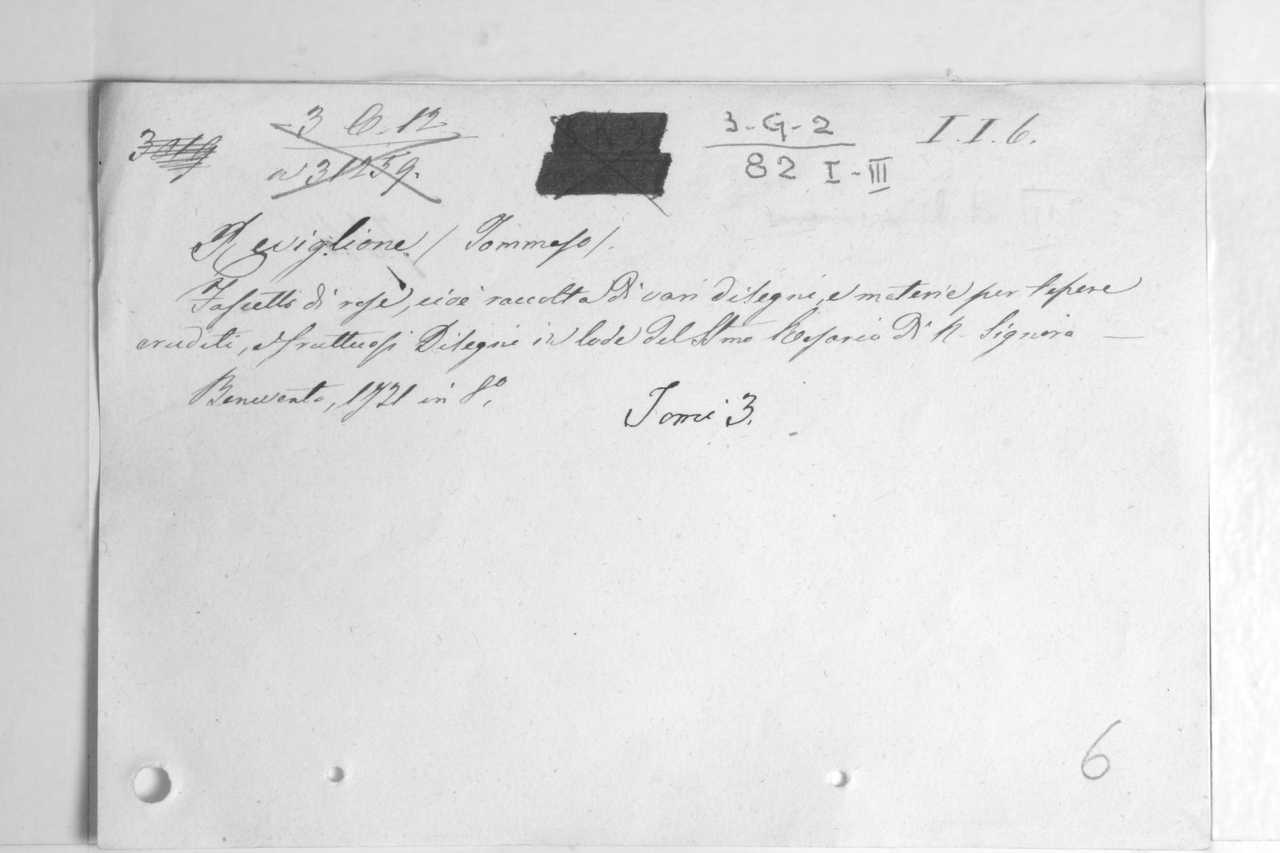 3-G-2 I.I.6.
82 I-III
3 C. 12
n 31259.
Reviglione (Tommaso).
Fascetto di rose, cioè raccolta di vari disegni, e materie per tessere
eruditi, e fruttuosi Disegni in lode del SSmo Rosario Di N. Signora —
Benevento, 1721 in 8º.
Tomi 3.
6